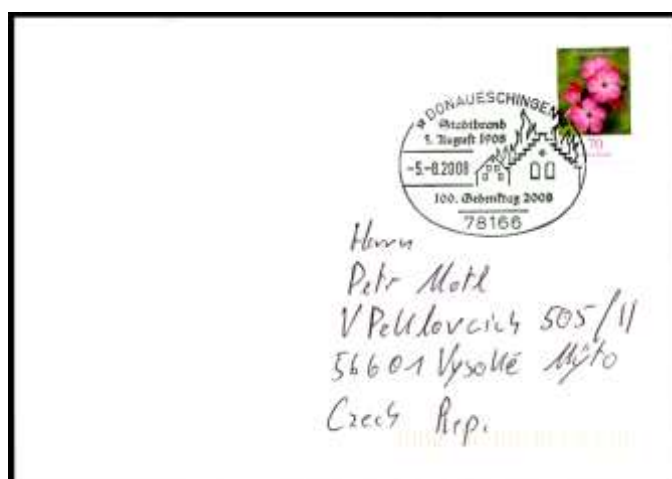 * DONAUESCHINGEN *
Stadtbrand
5. August 1908
-5.-8.2008
100. Gedenktag 2008
78166
70
Herrn
Petr Motl
V Peklovcích 505/II
56601 Vysoké Mýto
Czech Rep.